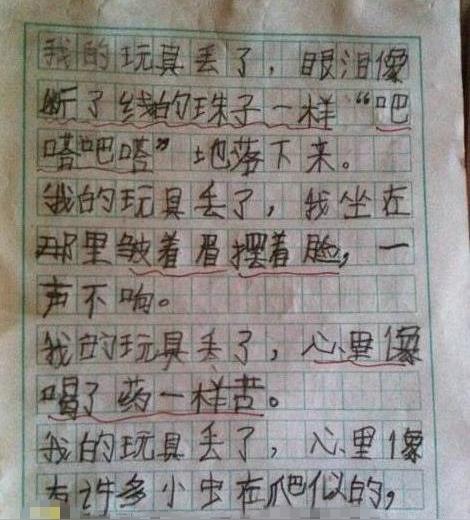 我的玩具丢了，眼泪像
断了线的珠子一样“吧
嗒吧嗒”地落下来。
我的玩具丢了，我坐在
那里皱着眉摆着脸，一
声不响。
我的玩具丢了，心里像
喝了药一样苦。
我的玩具丢了，心里像
有许多小虫在爬似的，